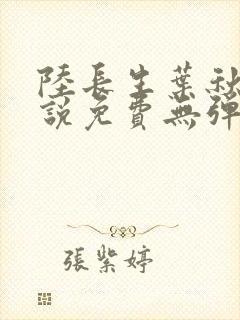 陸長生葉秋
說免費無彈
張紫婷